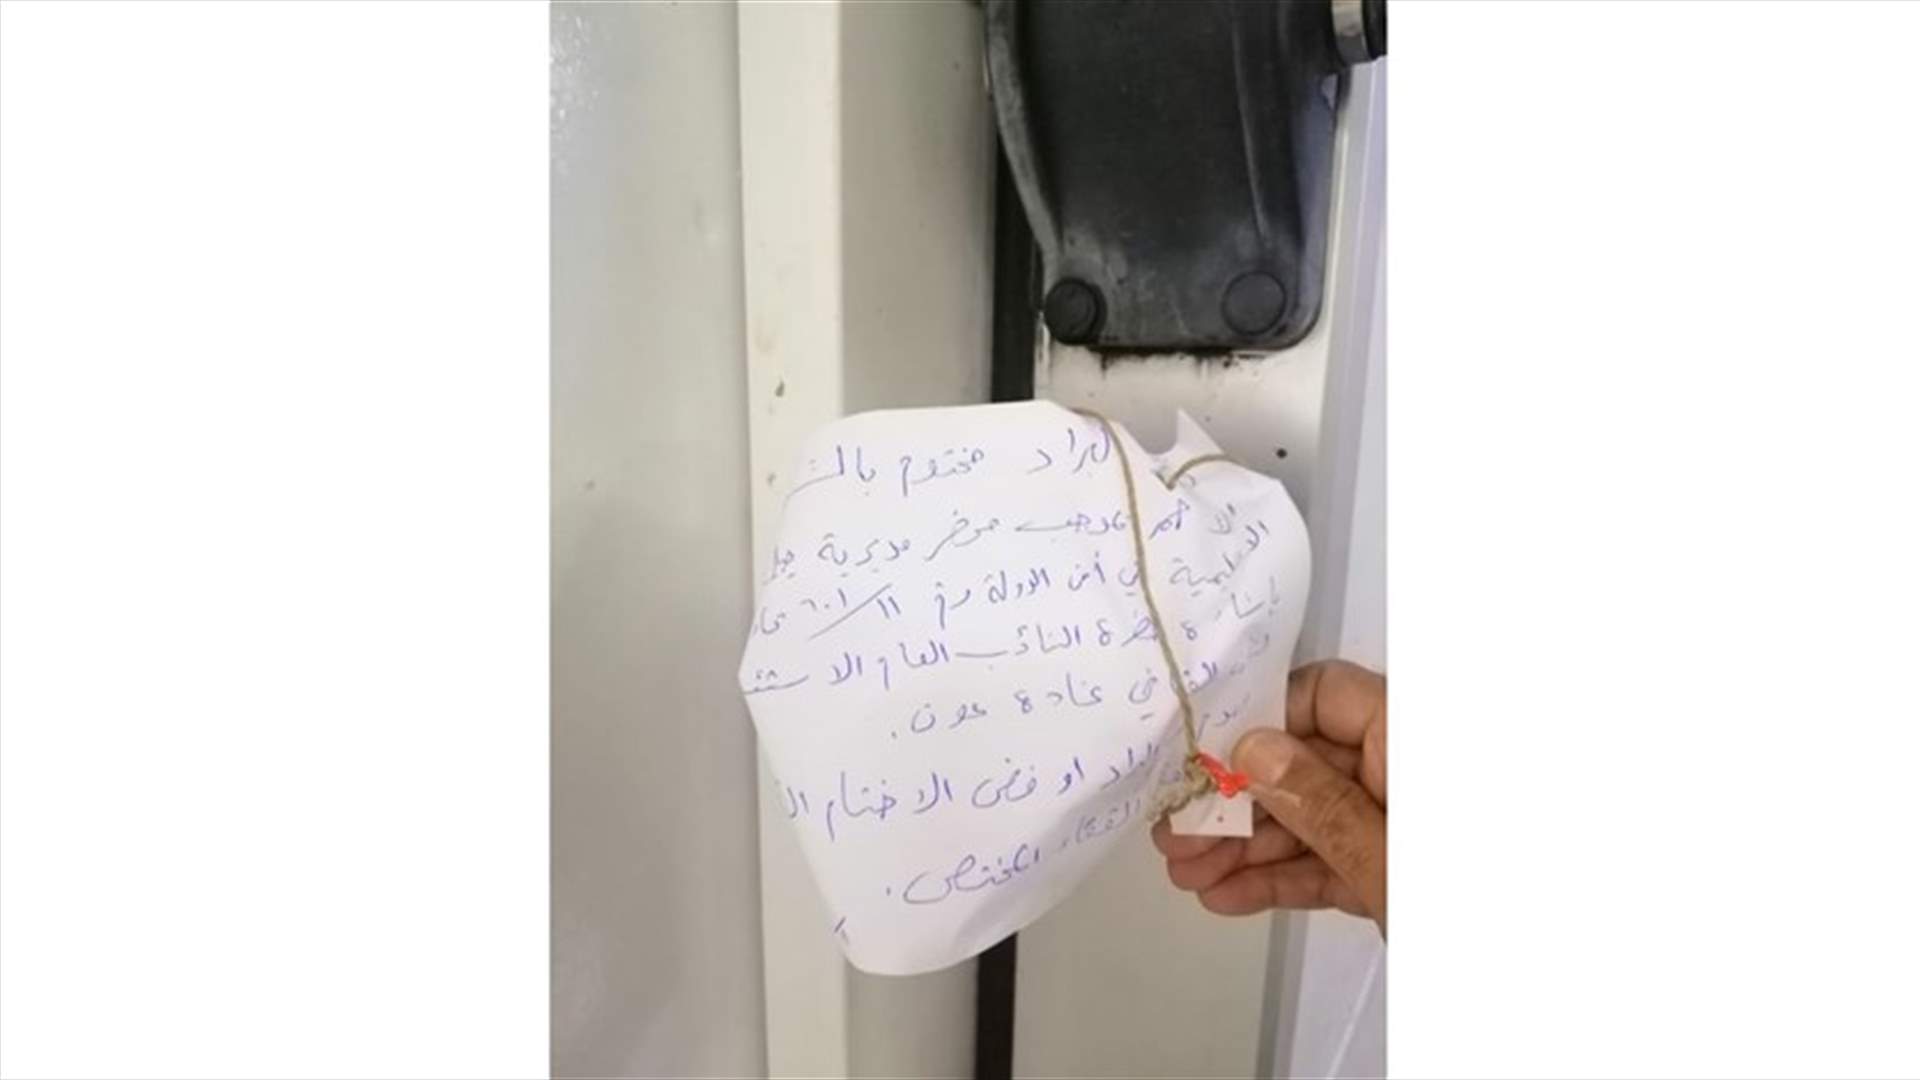 البراد مختوم بالش
الا بموجب محضر مديرية جبل
الاقليمية في أمن الدولة رقم ٦٠١/١١
بإشارة حضرة النائب العام الاستئنا
القاضي غادة عون.
البراد او فض الاختام ال
القضاء المختص.